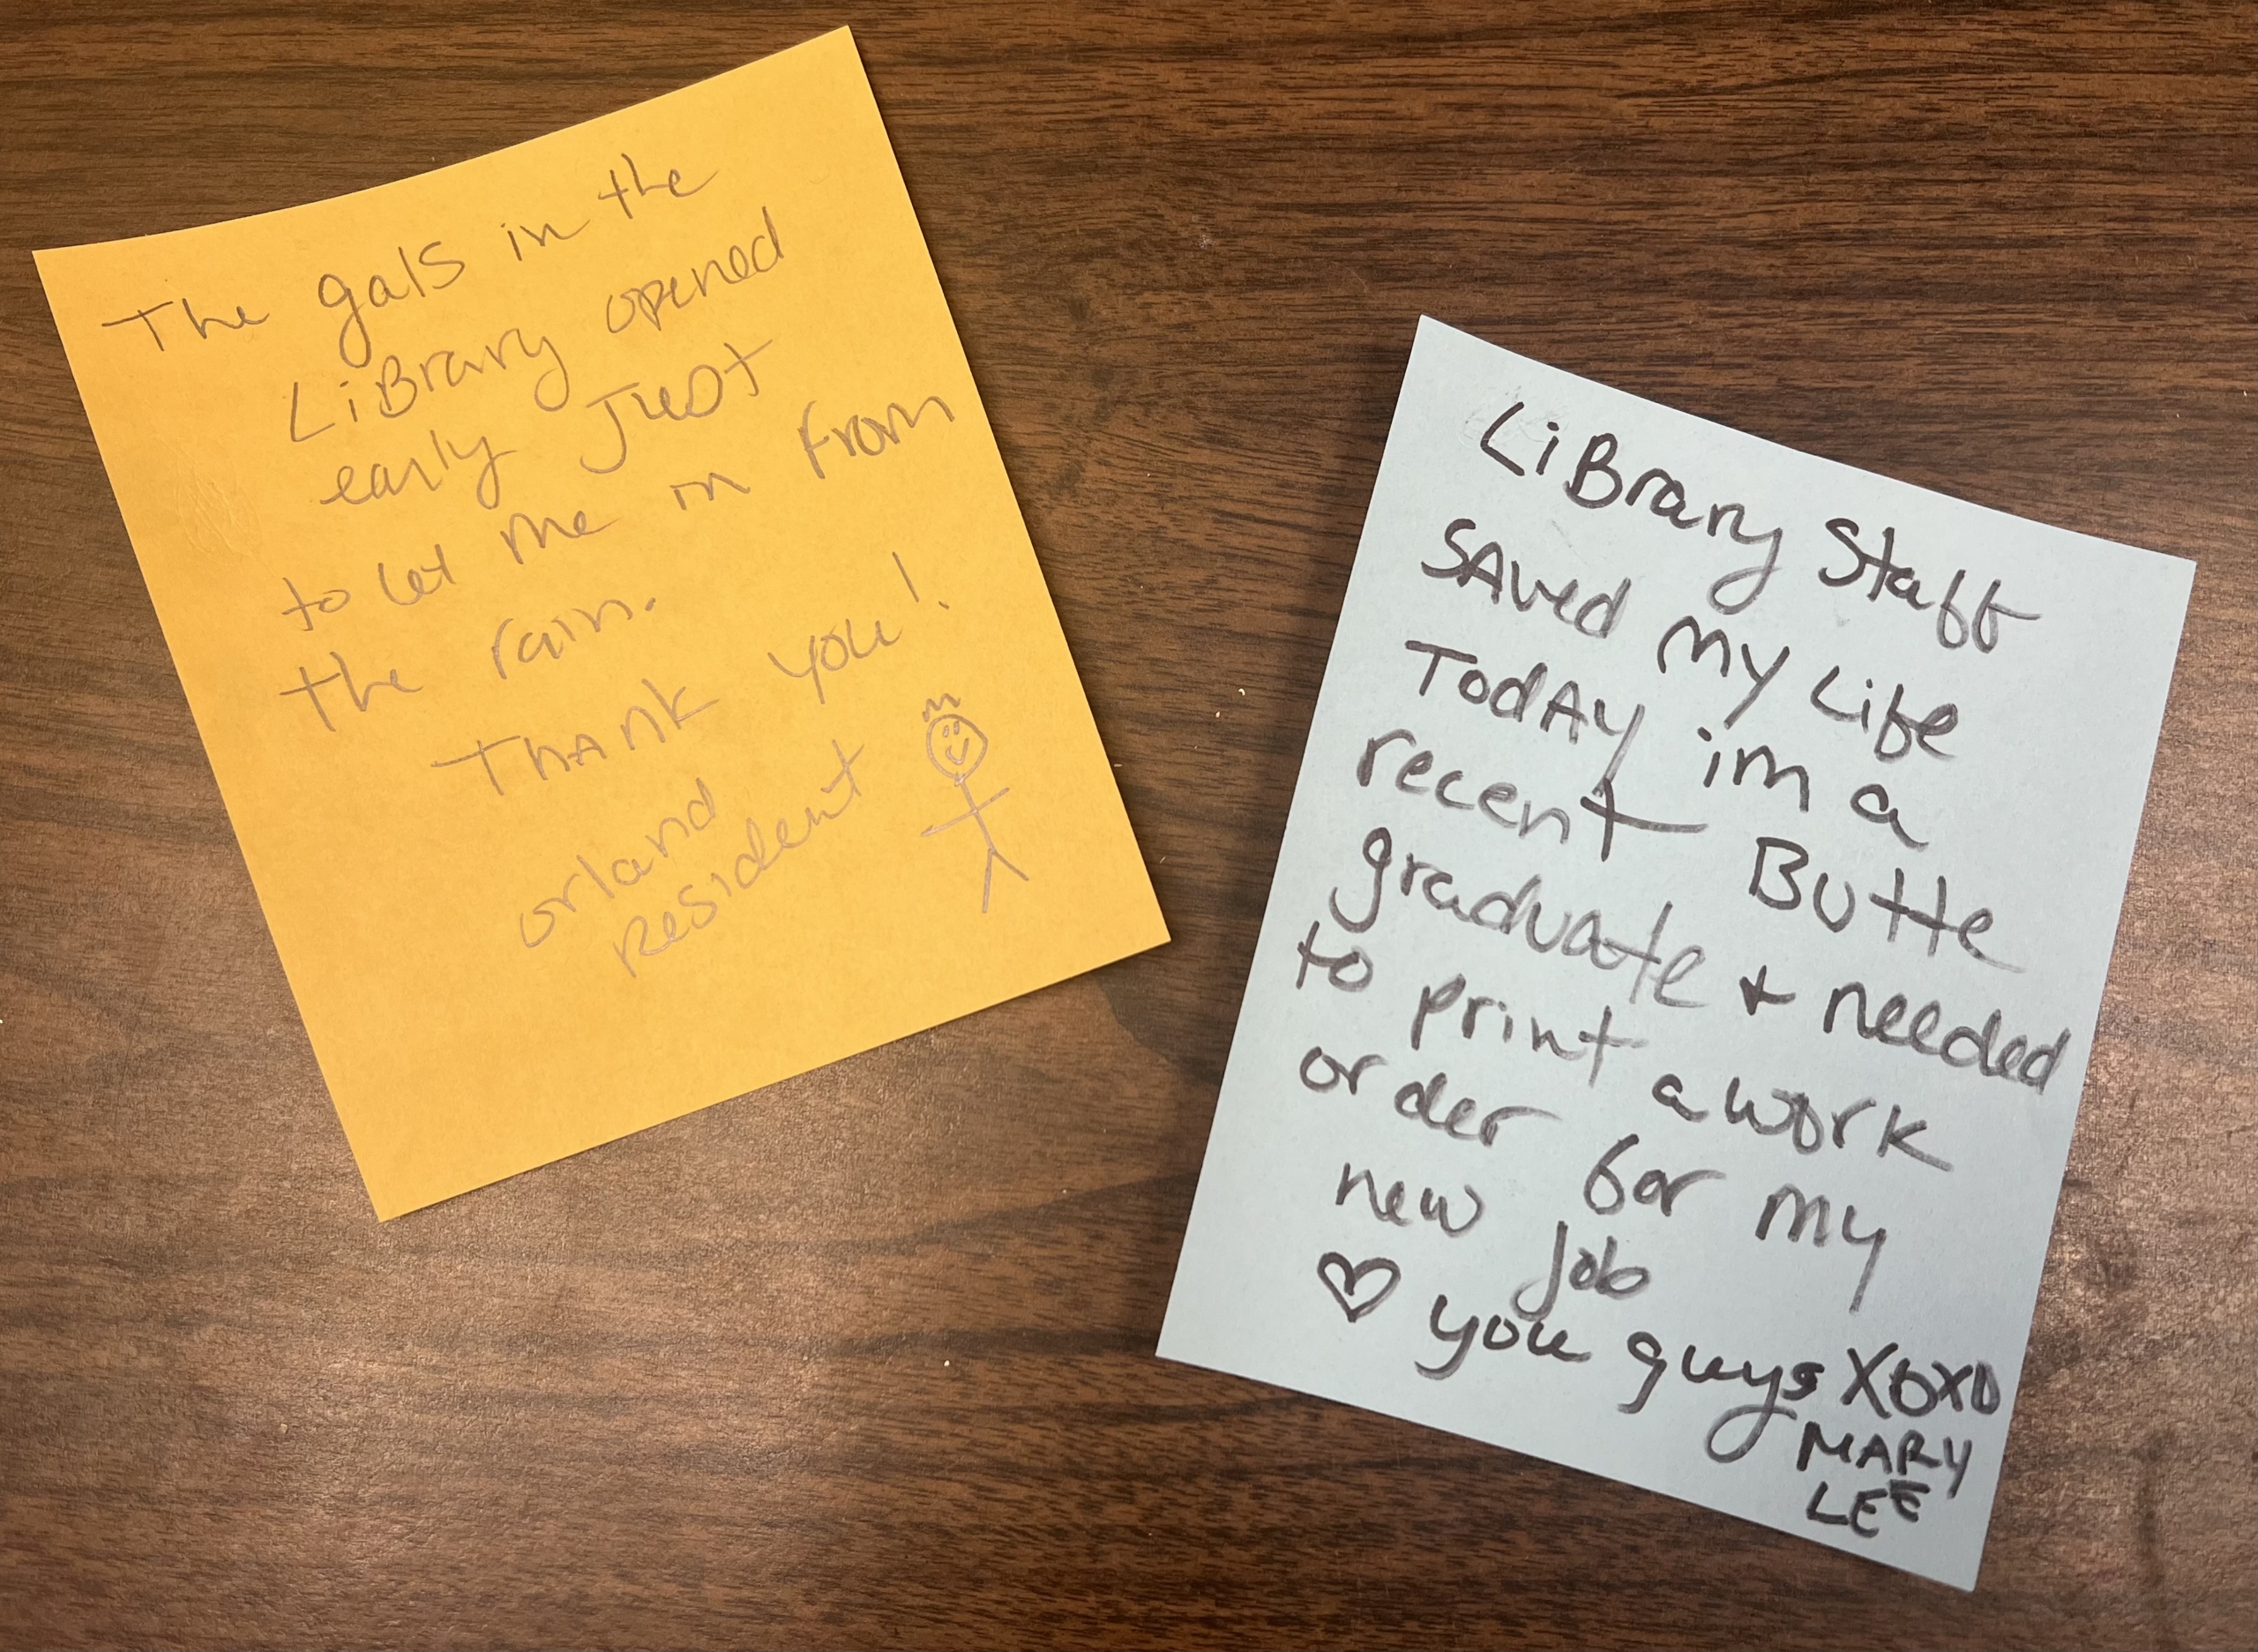 The gals in the
LiBrary opened
early Just
to let me in from
the rain.
THANK you!
orland
Resident
LiBrary Staff
SAved My Life
TodAy im a
recent Butte
graduate + needed
to print a work
order for my
new job
♡ you guys XOXO
MARY
LEE